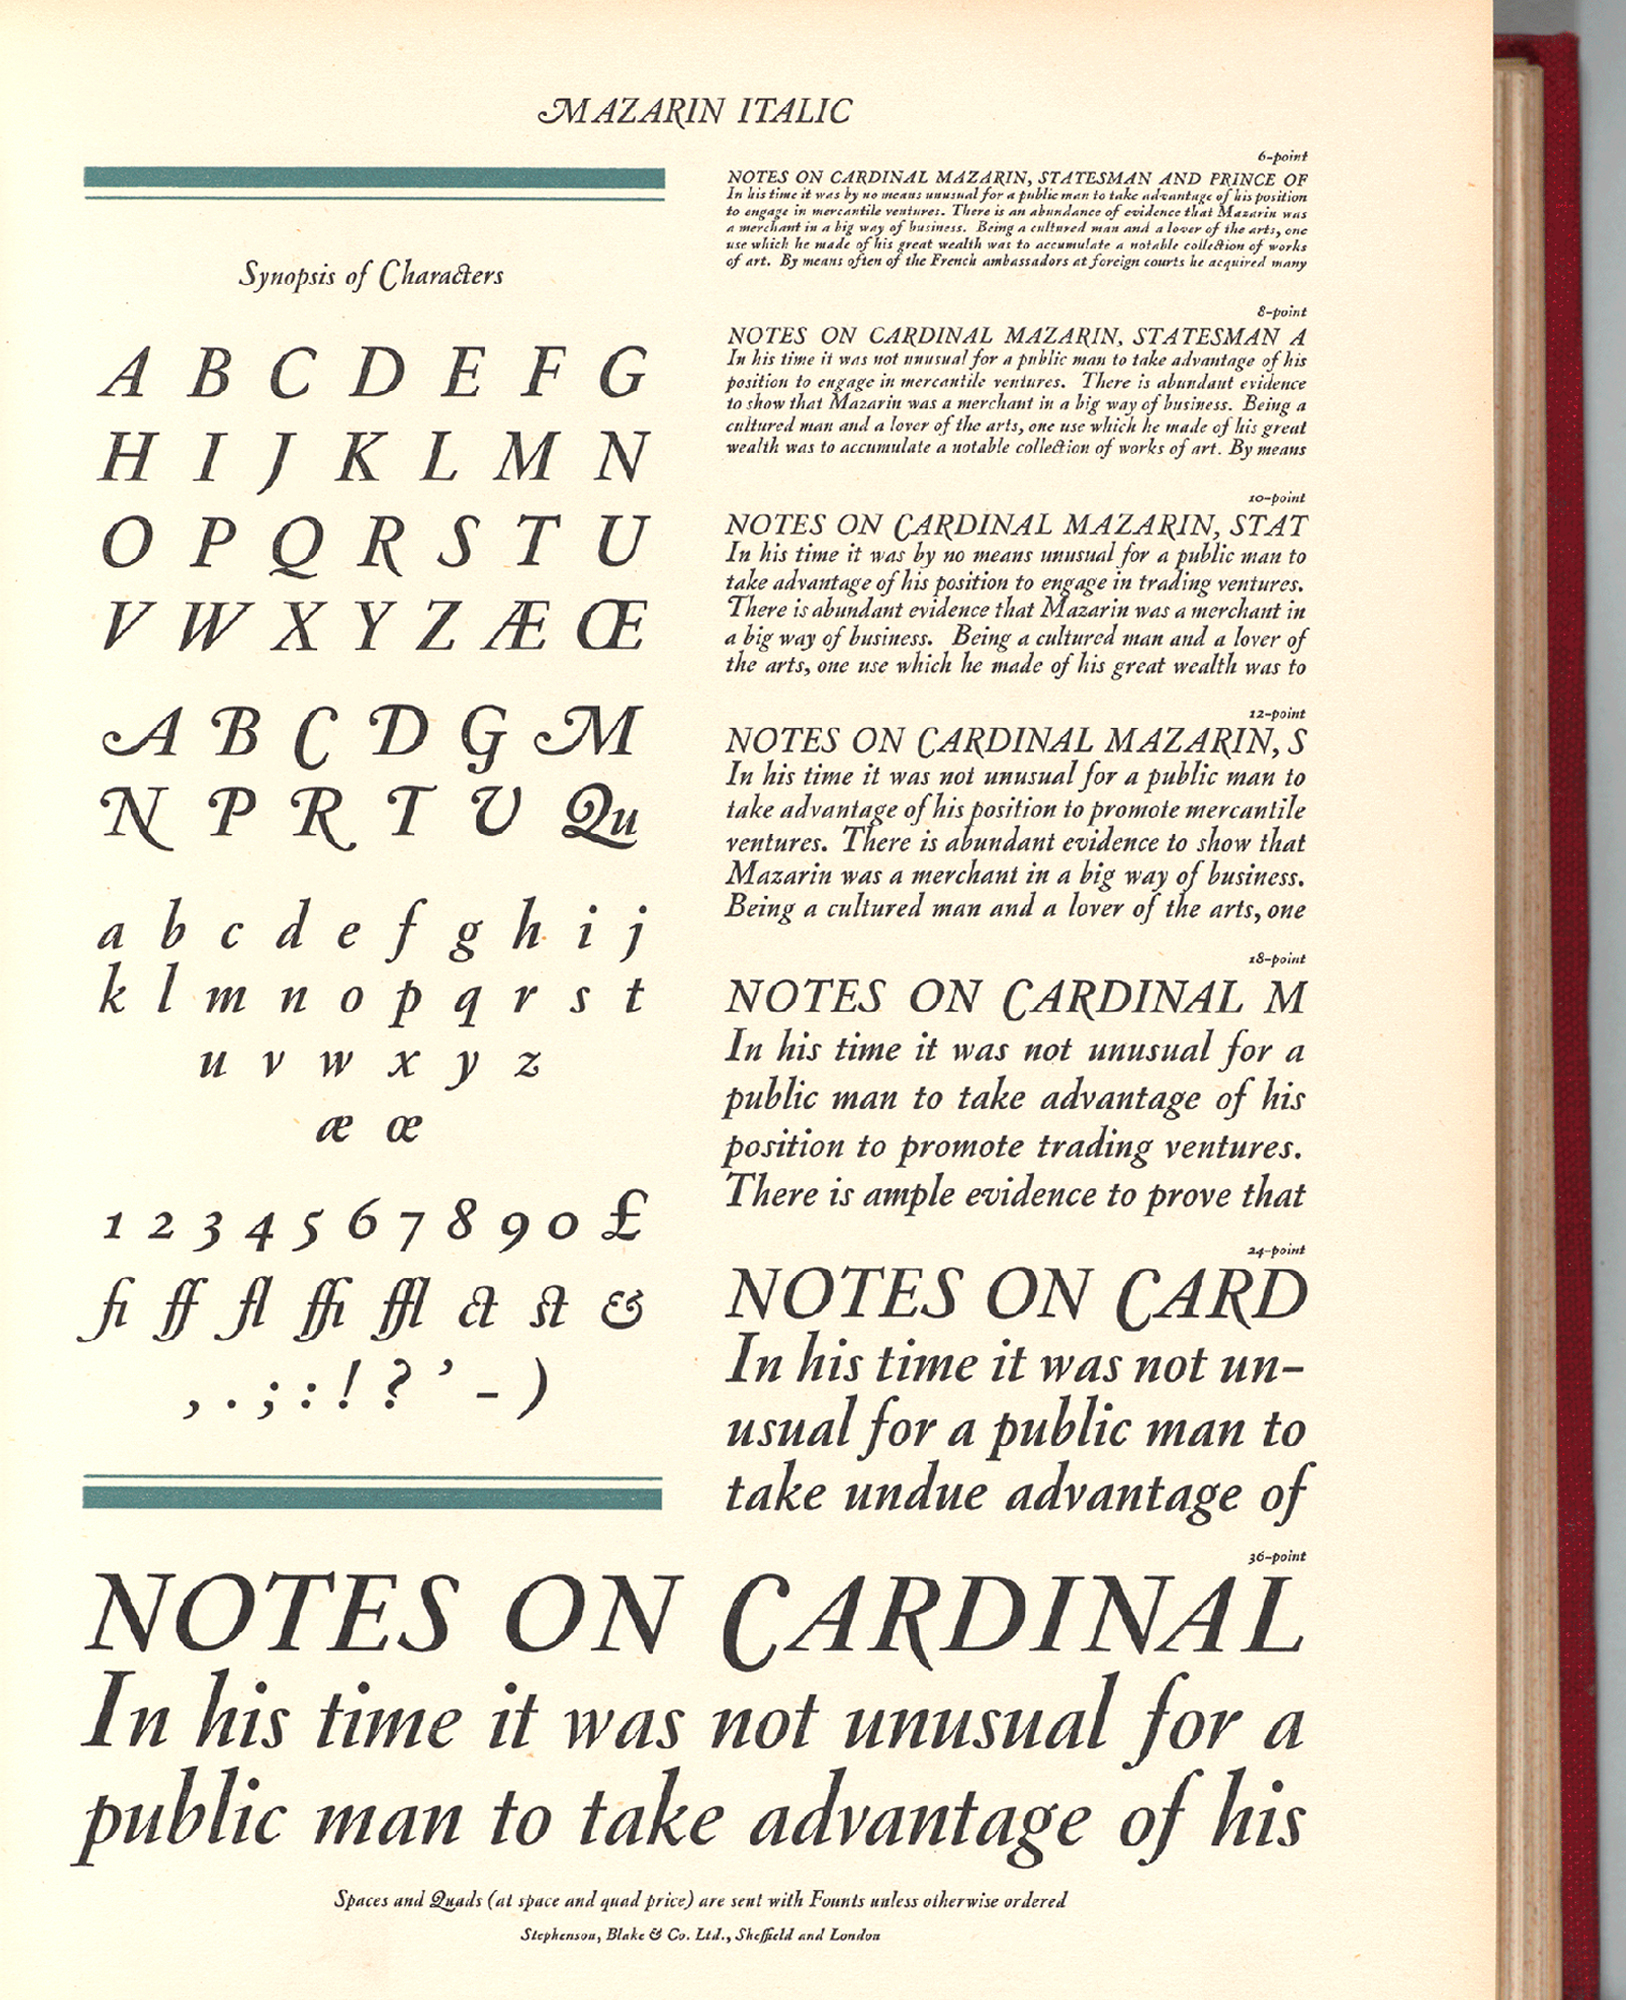 MAZARIN ITALIC
Synopsis of Characters
A B C D E F G
H I J K L M N
O P Q R S T U
V W X Y Z Æ Œ
A B C D G M
N P R T U Qu
a b c d e f g h i j
k l m n o p q r s t
u v w x y z
æ œ
1 2 3 4 5 6 7 8 9 0 £
fi ff fl ffi ffl ct st &
, . ; : ! ? ’ - )
6-point
NOTES ON CARDINAL MAZARIN, STATESMAN AND PRINCE OF
In his time it was by no means unusual for a public man to take advantage of his position
to engage in mercantile ventures. There is an abundance of evidence that Mazarin was
a merchant in a big way of business. Being a cultured man and a lover of the arts, one
use which he made of his great wealth was to accumulate a notable collection of works
of art. By means often of the French ambassadors at foreign courts he acquired many
8-point
NOTES ON CARDINAL MAZARIN, STATESMAN A
In his time it was not unusual for a public man to take advantage of his
position to engage in mercantile ventures. There is abundant evidence
to show that Mazarin was a merchant in a big way of business. Being a
cultured man and a lover of the arts, one use which he made of his great
wealth was to accumulate a notable collection of works of art. By means
10-point
NOTES ON CARDINAL MAZARIN, STAT
In his time it was by no means unusual for a public man to
take advantage of his position to engage in trading ventures.
There is abundant evidence that Mazarin was a merchant in
a big way of business. Being a cultured man and a lover of
the arts, one use which he made of his great wealth was to
12-point
NOTES ON CARDINAL MAZARIN, S
In his time it was not unusual for a public man to
take advantage of his position to promote mercantile
ventures. There is abundant evidence to show that
Mazarin was a merchant in a big way of business.
Being a cultured man and a lover of the arts, one
18-point
NOTES ON CARDINAL M
In his time it was not unusual for a
public man to take advantage of his
position to promote trading ventures.
There is ample evidence to prove that
24-point
NOTES ON CARD
In his time it was not un-
usual for a public man to
take undue advantage of
36-point
NOTES ON CARDINAL
In his time it was not unusual for a
public man to take advantage of his
Spaces and Quads (at space and quad price) are sent with Founts unless otherwise ordered
Stephenson, Blake & Co. Ltd., Sheffield and London